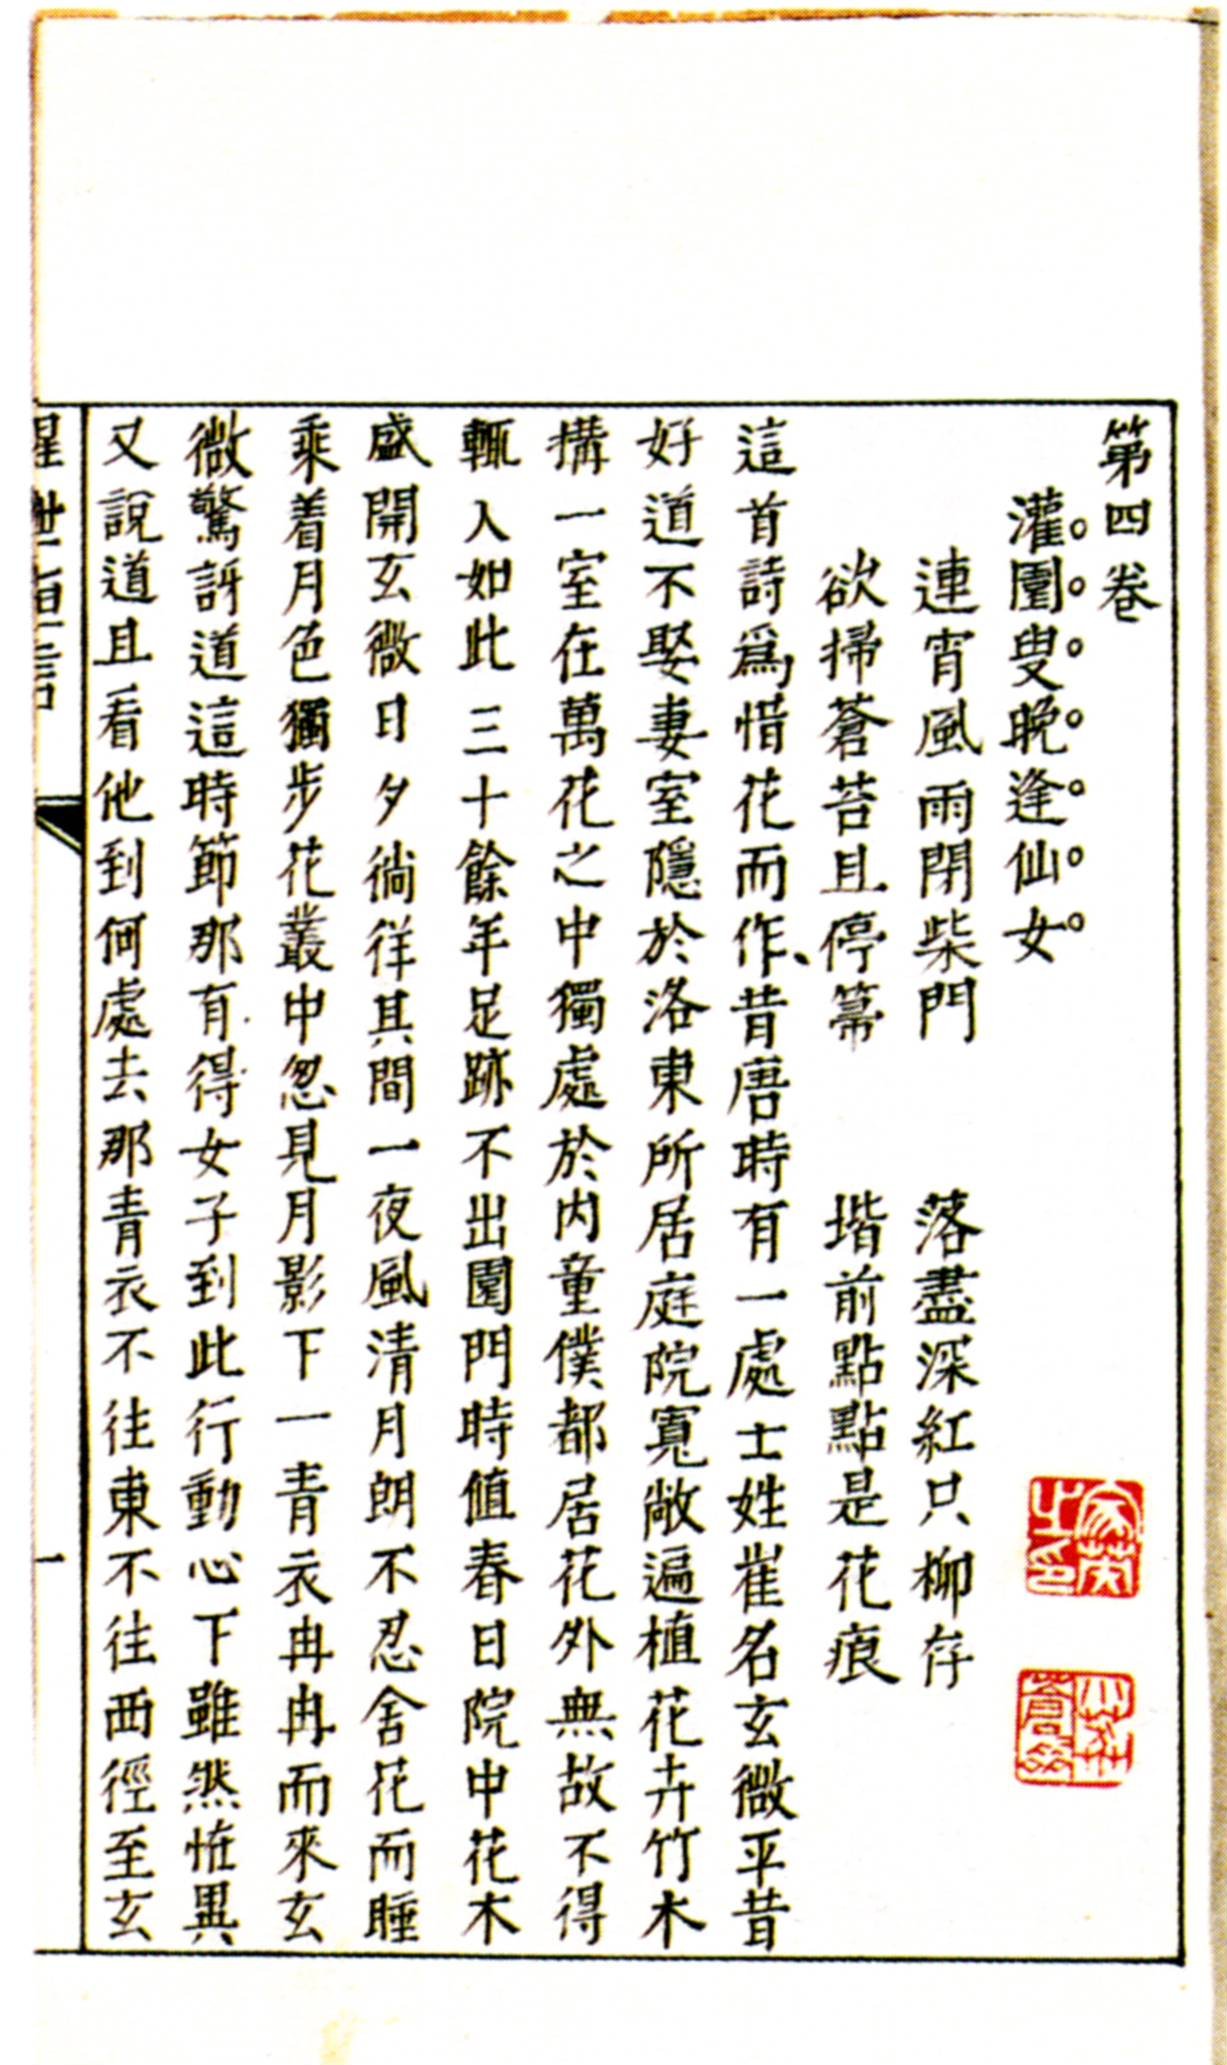 第四卷
灌園叟晚逢仙女
連宵風雨閉柴門　落盡深紅只柳存
欲掃蒼苔且停箒　堦前點點是花痕
這首詩爲惜花而作、昔唐時有一處士姓崔名玄微平昔
好道不娶妻室隱於洛東所居庭院寬敞遍植花卉竹木
搆一室在萬花之中獨處於內童僕都居花外無故不得
輒入如此三十餘年足跡不出園門時值春日院中花木
盛開玄微日夕徜徉其間一夜風清月朗不忍舍花而睡
乘着月色獨步花叢中忽見月影下一青衣冉冉而來玄
微驚訝道這時節那有得女子到此行動心下雖然恠異
又說道且看他到何處去那青衣不往東不往西徑至玄
醒世恒言
一